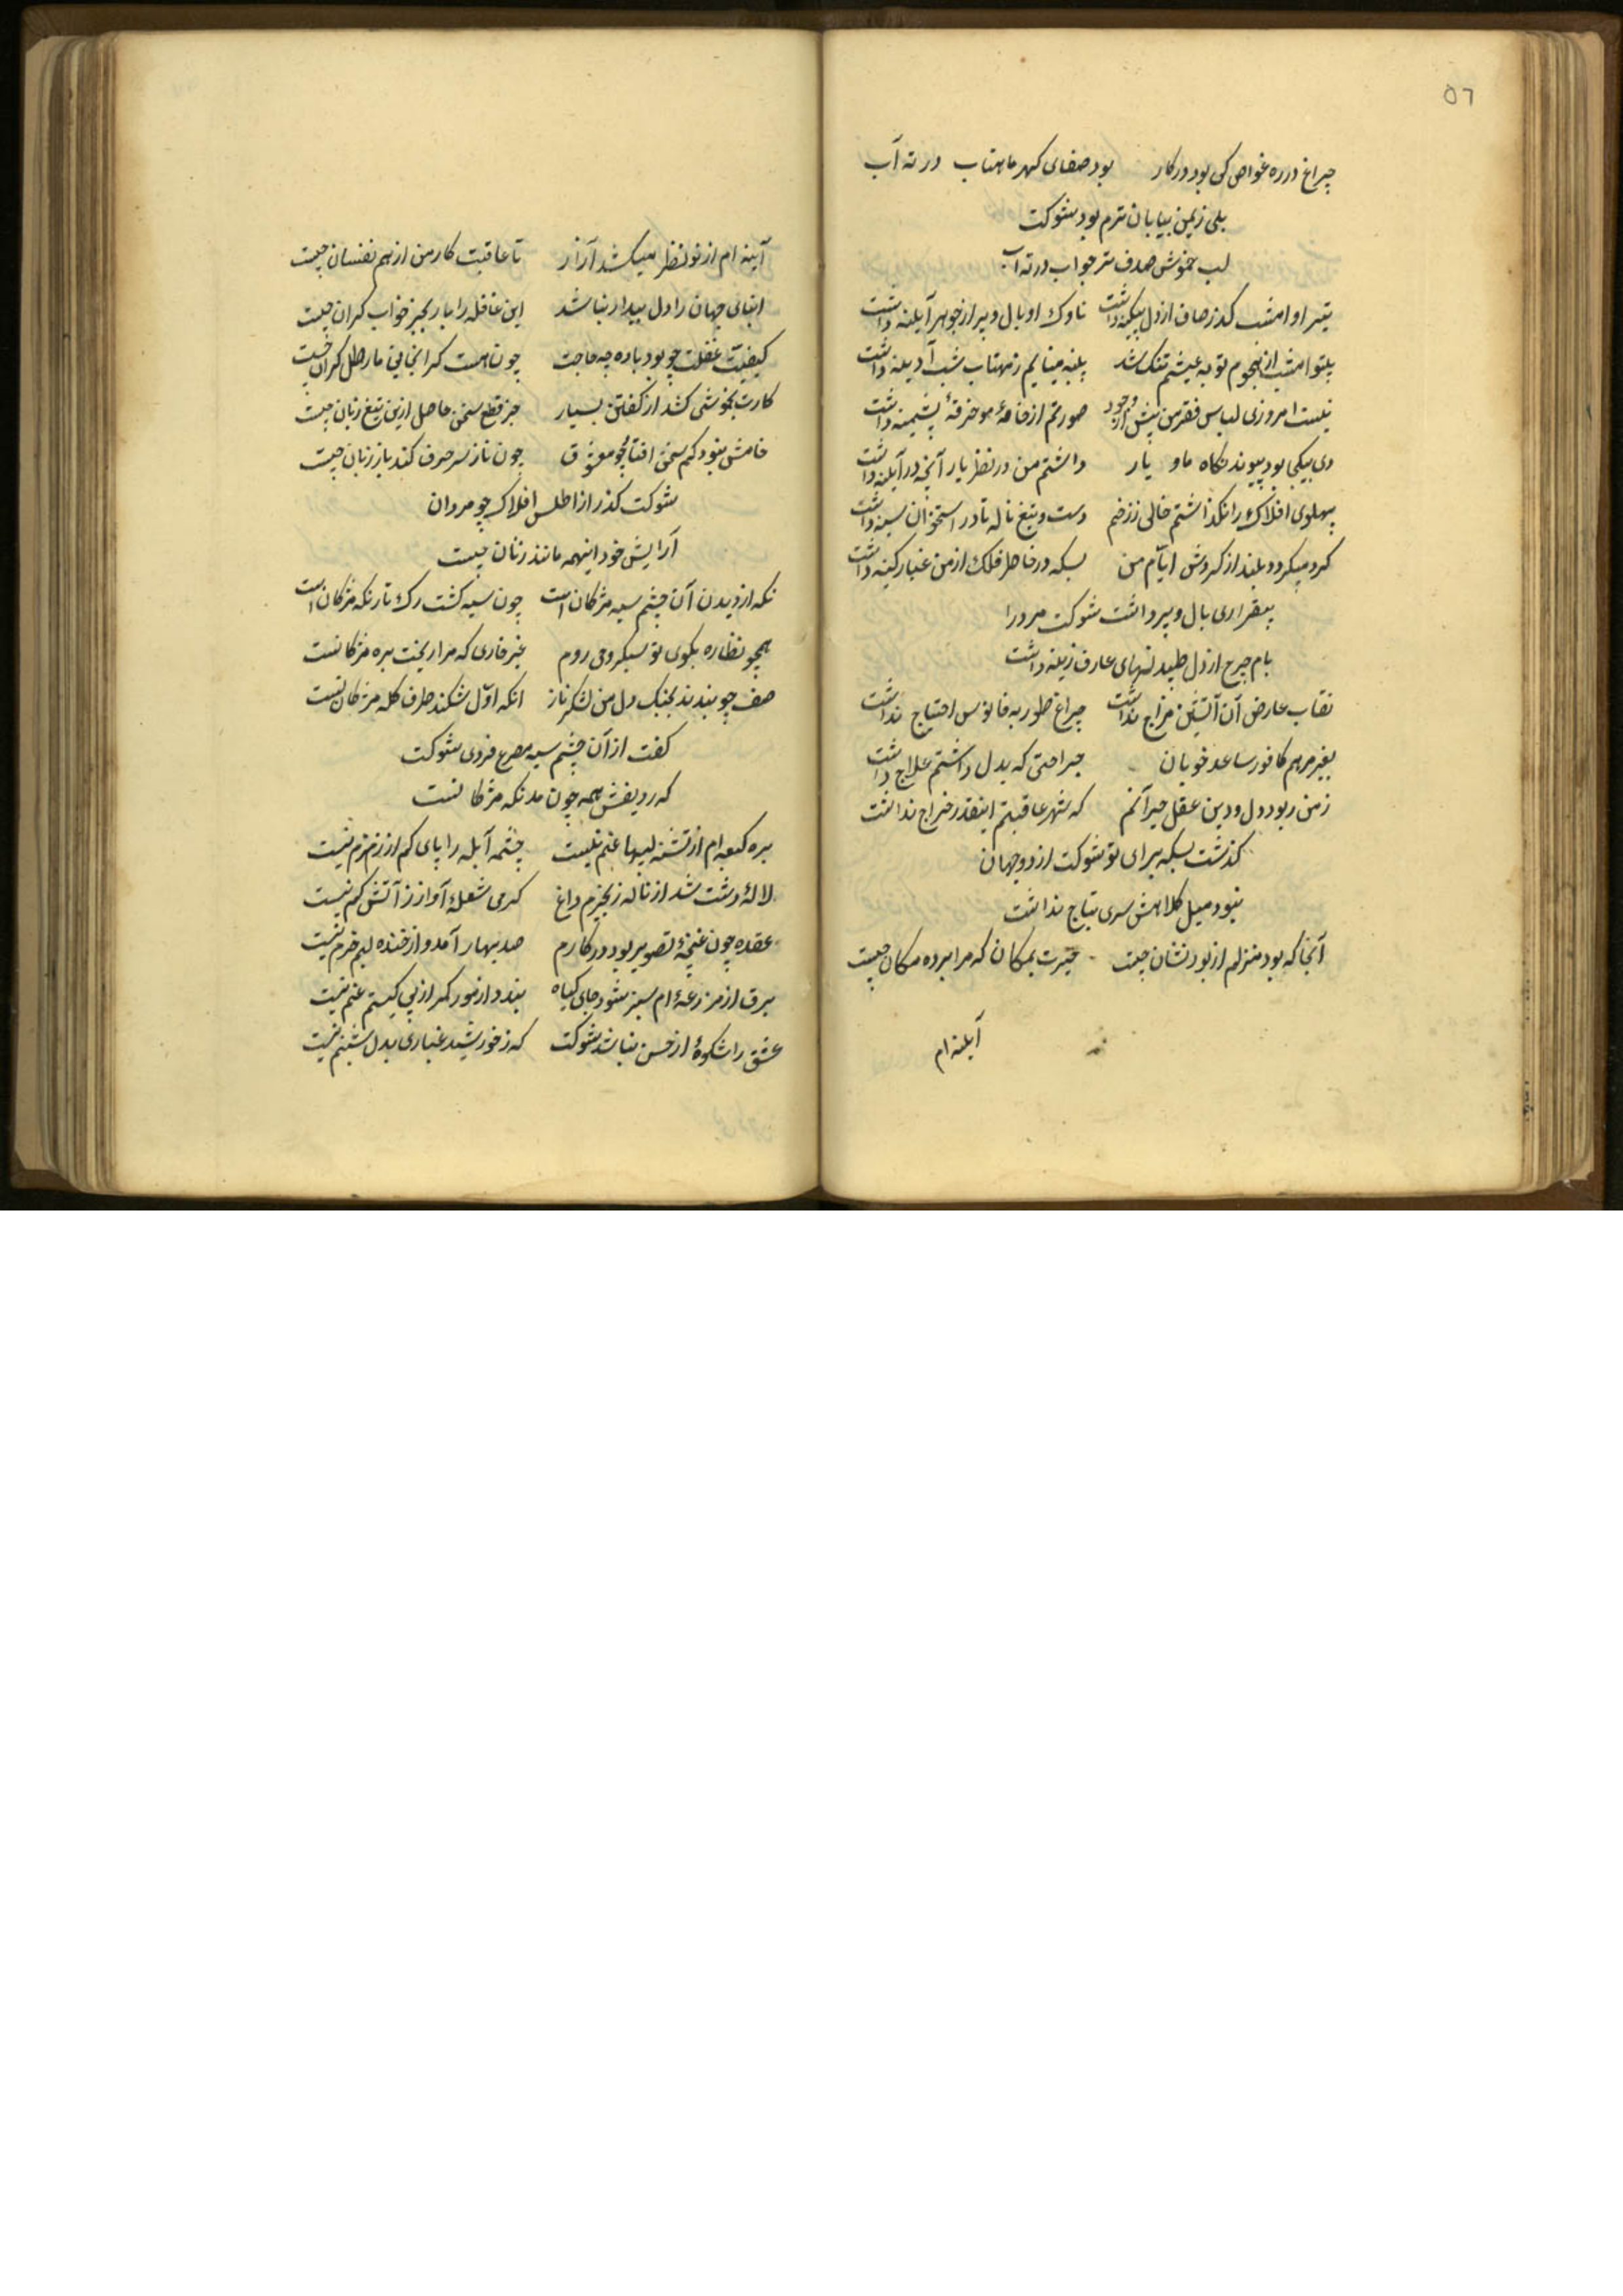 ٥٦
چراغ در ره غواص کی بود درکار بود صفای گهر ماهتاب در ته آب
بلی زمین بیابان نرم بود شوکت
لب خموش صدف تر جواب در ته آب
تیر او امشب گذر صاف از دل بیکینه داشت ناوک او بال و پر از جوهر آیینه داشت
امشب از هجوم توبه عیشم تنگ شد پنبه مینایم ز مهتاب شب آدینه داشت
نیست امروزی لباس فقر من پیش از وجود صورتم از خامهٔ مو خرقهٔ پشمینه داشت
دی بیکجا بود پیوند نگاه ما و یار داشتم من در نظر یار آنچه در آیینه داشت
پهلوی افلاک را نگذاشتم خالی ز زخم دست و تیغ ناله تا در استخوان سینه داشت
گرد میکردد بلند از کردش ایّام من بسکه در خاطر فلک از من غبار کینه داشت
بیقراری بال و پر داشت شوکت مر ورا
بام چرخ از دل طپیدنهای عارف زینه داشت
نقاب عارض آن آتشین مزاج نداشت چراغ طور به فانوس احتیاج نداشت
بغیر مرهم کافور ساعد خوبان جراحتی که بدل داشتم علاج نداشت
ز من ربود دل و دین عقل حیرانم که شهر عاقبتم اینقدر خراج نداشت
گذشت بسکه برای تو شوکت از دو جهان
نبود میل کلاهش سری بتاج نداشت
آنجا که بود منزلم از بود نشان چیست حیرت بمکان که مرا برده مکان چیست
آیینه ام
آیینه ام از تو نظر میکشد آزار تا عاقبت کار من از هم نفسان چیست
ابنای جهان را دل بیدار نباشد این غافله را بار بجز خواب گران چیست
کیفیّت غفلت چو بود باده چه حاجت چون هست گرانجانی ما رطل گران چیست
کارت بخموشی کشد از گفتن بسیار جز قطع سخن حاصل ازین تیغ زبان چیست
خامش نبود کم سخن افتاد چو معشوق چون ناز سر حرف کند باز زبان چیست
شوکت گذر از اطلس افلاک چو مردان
آرایش خود اینهمه مانند زنان چیست
نگه از دیدن آن چشم سیه مژگان است چون سیه گشت رگ تار نگه مژگان است
همچو نظاره بکوی تو سبکرو می روم غیر خاری که مرا ریخت بره مژگانست
صف چو بندند بجنگ دل من لشگر ناز انکه اوّل شکند طرف کله مژگانست
گفت از آن چشم سیه مصرع فردی شوکت
که ردیفش همه چون مد نگه مژگانست
بره کعبه ام از تشنه لبیها غم نیست چشمه آبله را پای کم از زمزم نیست
لالهٔ دشت شد از ناله زنجیرم داغ گرمی شعلهٔ آواز ز آتش کم نیست
عقده چون غنچهٔ تصویر بود در کارم صد بهار آمد و از خنده لبم خرم نیست
برق از مزرعهٔ ام سبز شود جای گیاه بندد از مور کمر از پی کیستم غم نیست
عشق را شکوهٔ از حسن نباشد شوکت که ز خورشید غباری بدل شبنم نیست